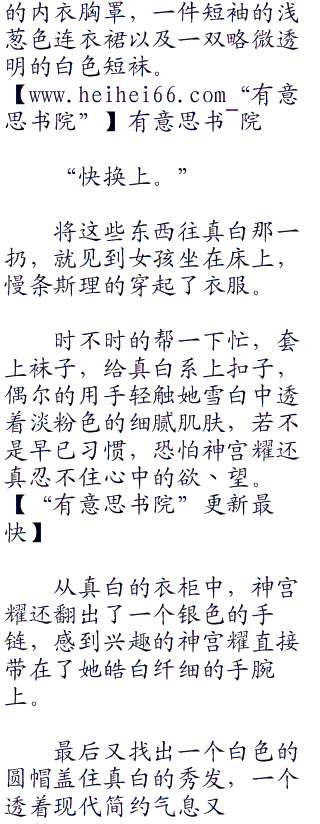 的内衣胸罩，一件短袖的浅
葱色连衣裙以及一双略微透
明的白色短袜。
【www.heihei66.com“有意
思书院”】有意思书¯院
“快换上。”
将这些东西往真白那一
扔，就见到女孩坐在床上，
慢条斯理的穿起了衣服。
时不时的帮一下忙，套
上袜子，给真白系上扣子，
偶尔的用手轻触她雪白中透
着淡粉色的细腻肌肤，若不
是早已习惯，恐怕神宫耀还
真忍不住心中的欲丶望。
【“有意思书院”更新最
快】
从真白的衣柜中，神宫
耀还翻出了一个银色的手
链，感到兴趣的神宫耀直接
带在了她皓白纤细的手腕
上。
最后又找出一个白色的
圆帽盖住真白的秀发，一个
透着现代简约气息又